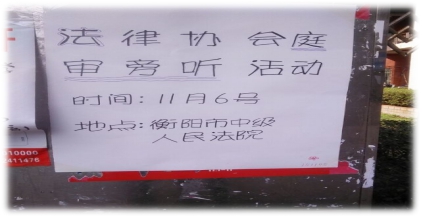 法律协会庭
审旁听 活动
时间：11月6号
地点：衡阳市中级
人民法院
10000
411476